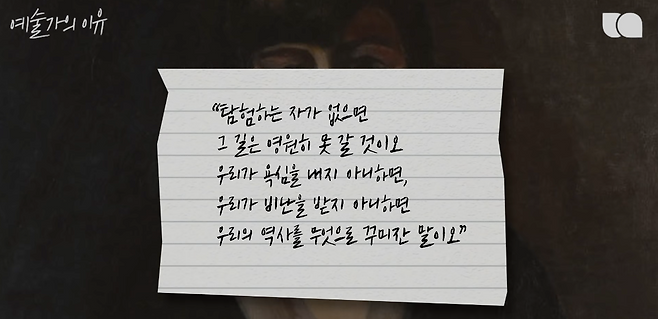 예술가의 이유
“탐험하는 자가 없으면
그 길은 영원히 못 갈 것이오
우리가 욕심을 내지 아니하면,
우리가 비난을 받지 아니하면
우리의 역사를 무엇으로 꾸미잔 말이오”